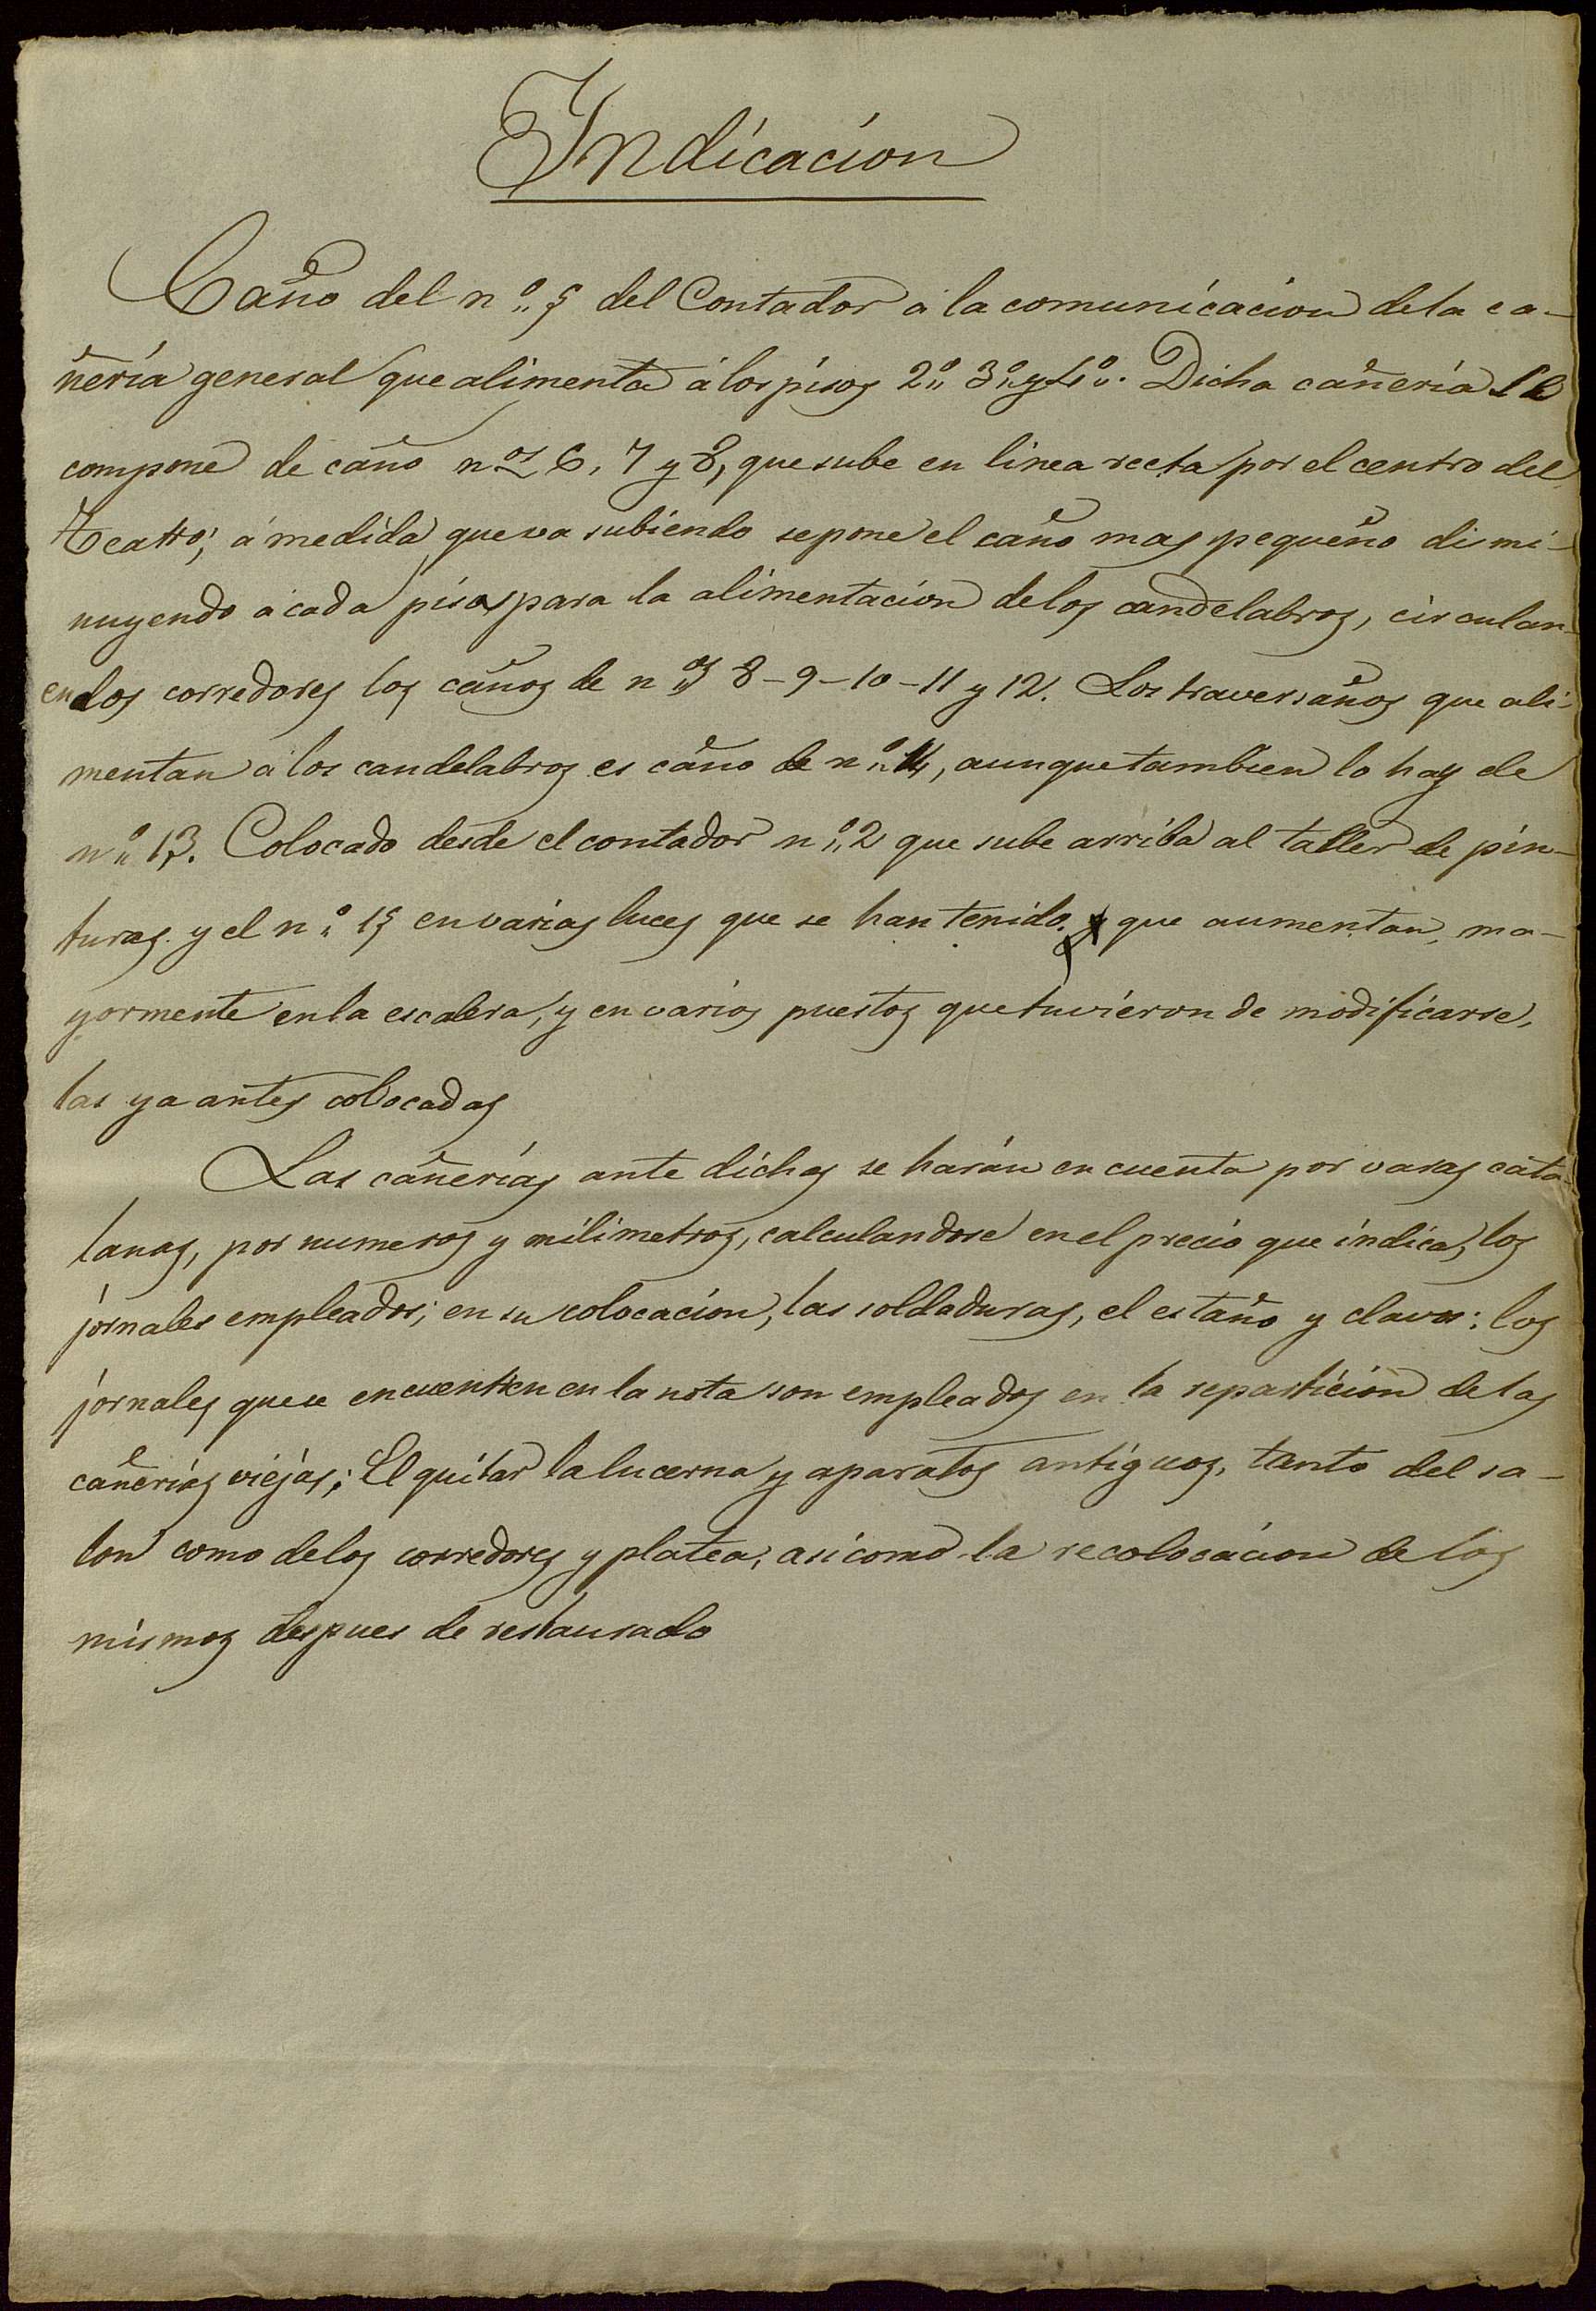 Indicacion
Caño del nº 5 del Contador á la comunicacion de la ca-
ñería general que alimenta á los pisos 2º 3º y 4º. Dicha cañería se
compone de caño nos 6, 7 y 8, que sube en linea recta por el centro del
Teatro; á medida que va subiendo se pone el caño mas pequeño dismi-
nuyendo á cada piso para la alimentacion de los candelabros, circulan
en los corredores los caños de nos 8-9-10-11 y 12. Los traversaños que ali-
mentan á los candelabros es caño de nº 14, aunque tambien lo hay de
nº 13. Colocado desde el contador nº 2 que sube arriba al taller de pin-
turas y el nº 15 en varias luces que se han tenido que aumentar, ma-
yormente en la escalera, y en varios puestos que tuvieron de modificarse,
las ya antes colocadas
Las cañerías ante dichas se harán en cuenta por varas cata-
lanas, por numeros y milimetros, calculandose en el precio que indica, los
jornales empleados; en su colocacion, las soldaduras, el estaño y clavos; los
jornales que se encuentren en la nota son empleados en la reparticion de las
cañerías viejas; El quitar la lucerna y aparatos antiguos, tanto del sa-
lon como de los corredores y platea, asi como la recolocacion de los
mismos despues de restaurado